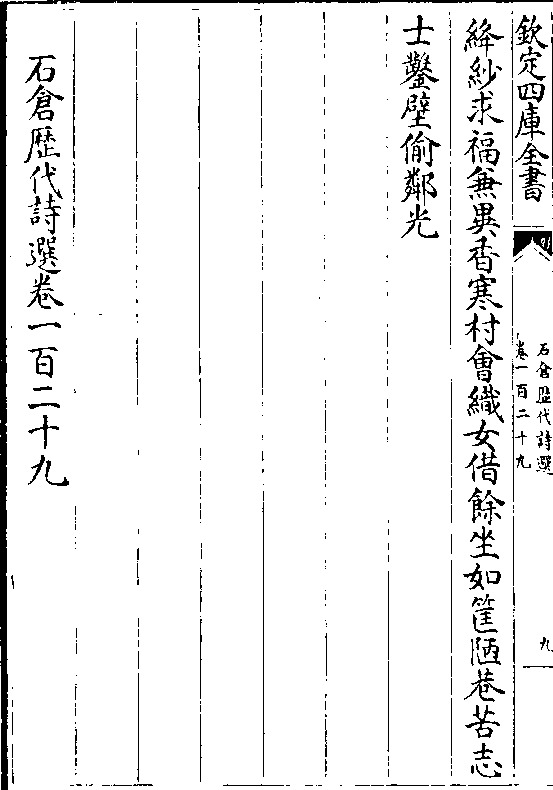 欽定四庫全書
石倉歴代詩選
卷一百二十九
九
絳紗求福兼異香寒村會織女借餘坐如筐陋巷苦志
士鑿壁偷鄰光
石倉歴代詩選卷一百二十九